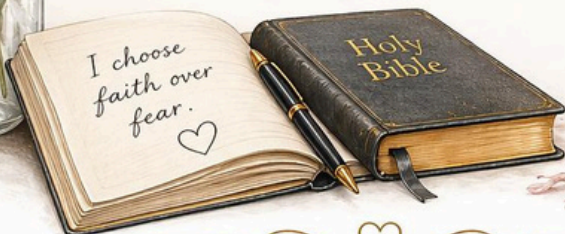 I choose
faith over
fear.
Holy
Bible